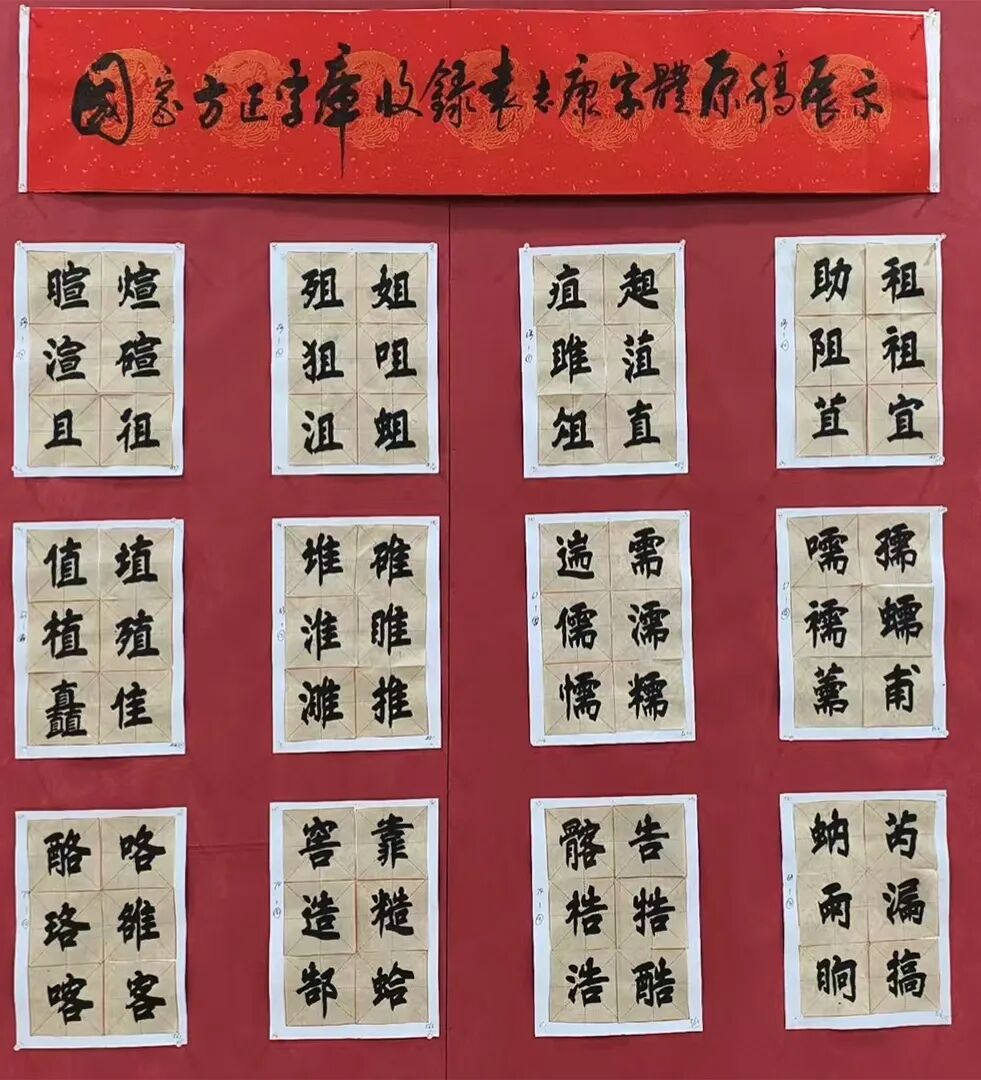 國家方正字庫收錄袁志康字體原稿展示
暄煊
渲碹
且徂
殂姐
狙咀
沮蛆
疽趄
雎菹
俎直
助租
阻祖
苴宜
值埴
植殖
矗佳
堆碓
淮睢
濉推
遄需
儒濡
懦糯
嚅孺
襦蠕
薷甫
酪咯
珞雒
喀客
窖靠
造糙
郜蛤
髂告
梏牿
浩酷
蚋芮
雨漏
晌搞